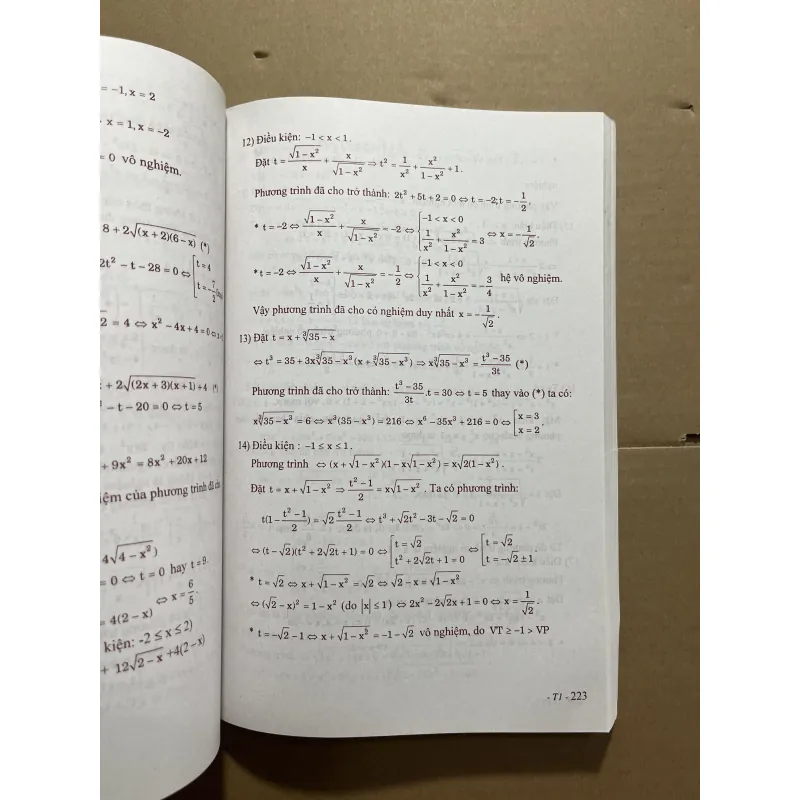 = −1, x = 2
x = 1, x = −2
= 0 vô nghiệm.
8 + 2√((x + 2)(6 − x)) (*)
2t² − t − 28 = 0 ⇔ [t = 4
t = −7/2
2 = 4 ⇔ x² − 4x + 4 = 0 ⇔
+ 2√((2x + 3)(x + 1)) + 4 (*)
− t − 20 = 0 ⇔ t = 5
+ 9x² = 8x² + 20x + 12
của phương trình đã
4√(4 − x²)
= 0 ⇔ t = 0 hay t = 9.
⇔ x = 6/5.
= 4(2 − x)
kiện: -2 ≤ x ≤ 2)
+ 12√(2 − x) + 4(2 − x)
12) Điều kiện: −1 < x < 1.
Đặt t = √(1 − x²)/x + x/√(1 − x²) ⇒ t² = 1/x² + x²/(1 − x²) + 1.
Phương trình đã cho trở thành: 2t² + 5t + 2 = 0 ⇔ t = −2; t = −1/2.
* t = −2 ⇔ √(1 − x²)/x + x/√(1 − x²) = −2 ⇔ {−1 < x < 0; 1/x² + x²/(1 − x²) = 3 ⇔ x = −1/√2.
* t = −2 ⇔ √(1 − x²)/x + x/√(1 − x²) = −1/2 ⇔ {−1 < x < 0; 1/x² + x²/(1 − x²) = −3/4 hệ vô nghiệm.
Vậy phương trình đã cho có nghiệm duy nhất x = −1/√2.
13) Đặt t = x + ∛(35 − x)
⇔ t³ = 35 + 3x∛(35 − x³)(x + ∛(35 − x³)) ⇒ x∛(35 − x³) = (t³ − 35)/3t (*)
Phương trình đã cho trở thành: (t³ − 35)/3t.t = 30 ⇔ t = 5 thay vào (*) ta có:
x∛(35 − x³) = 6 ⇔ x³(35 − x³) = 216 ⇔ x⁶ − 35x³ + 216 = 0 ⇔ [x = 3; x = 2.
14) Điều kiện : −1 ≤ x ≤ 1.
Phương trình ⇔ (x + √(1 − x²))(1 − x√(1 − x²)) = x√(2(1 − x²)).
Đặt t = x + √(1 − x²) ⇒ (t² − 1)/2 = x√(1 − x²). Ta có phương trình:
t(1 − (t² − 1)/2) = √2 (t² − 1)/2 ⇔ t³ + √2t² − 3t − √2 = 0
⇔ (t − √2)(t² + 2√2t + 1) = 0 ⇔ [t = √2; t² + 2√2t + 1 = 0 ⇔ [t = √2; t = −√2 ± 1
* t = √2 ⇔ x + √(1 − x²) = √2 ⇔ √2 − x = √(1 − x²)
⇔ (√2 − x)² = 1 − x² (do |x| ≤ 1) ⇔ 2x² − 2√2x + 1 = 0 ⇔ x = 1/√2.
* t = −√2 − 1 ⇔ x + √(1 − x²) = −1 − √2 vô nghiệm, do VT ≥ −1 > VP
- T1 - 223